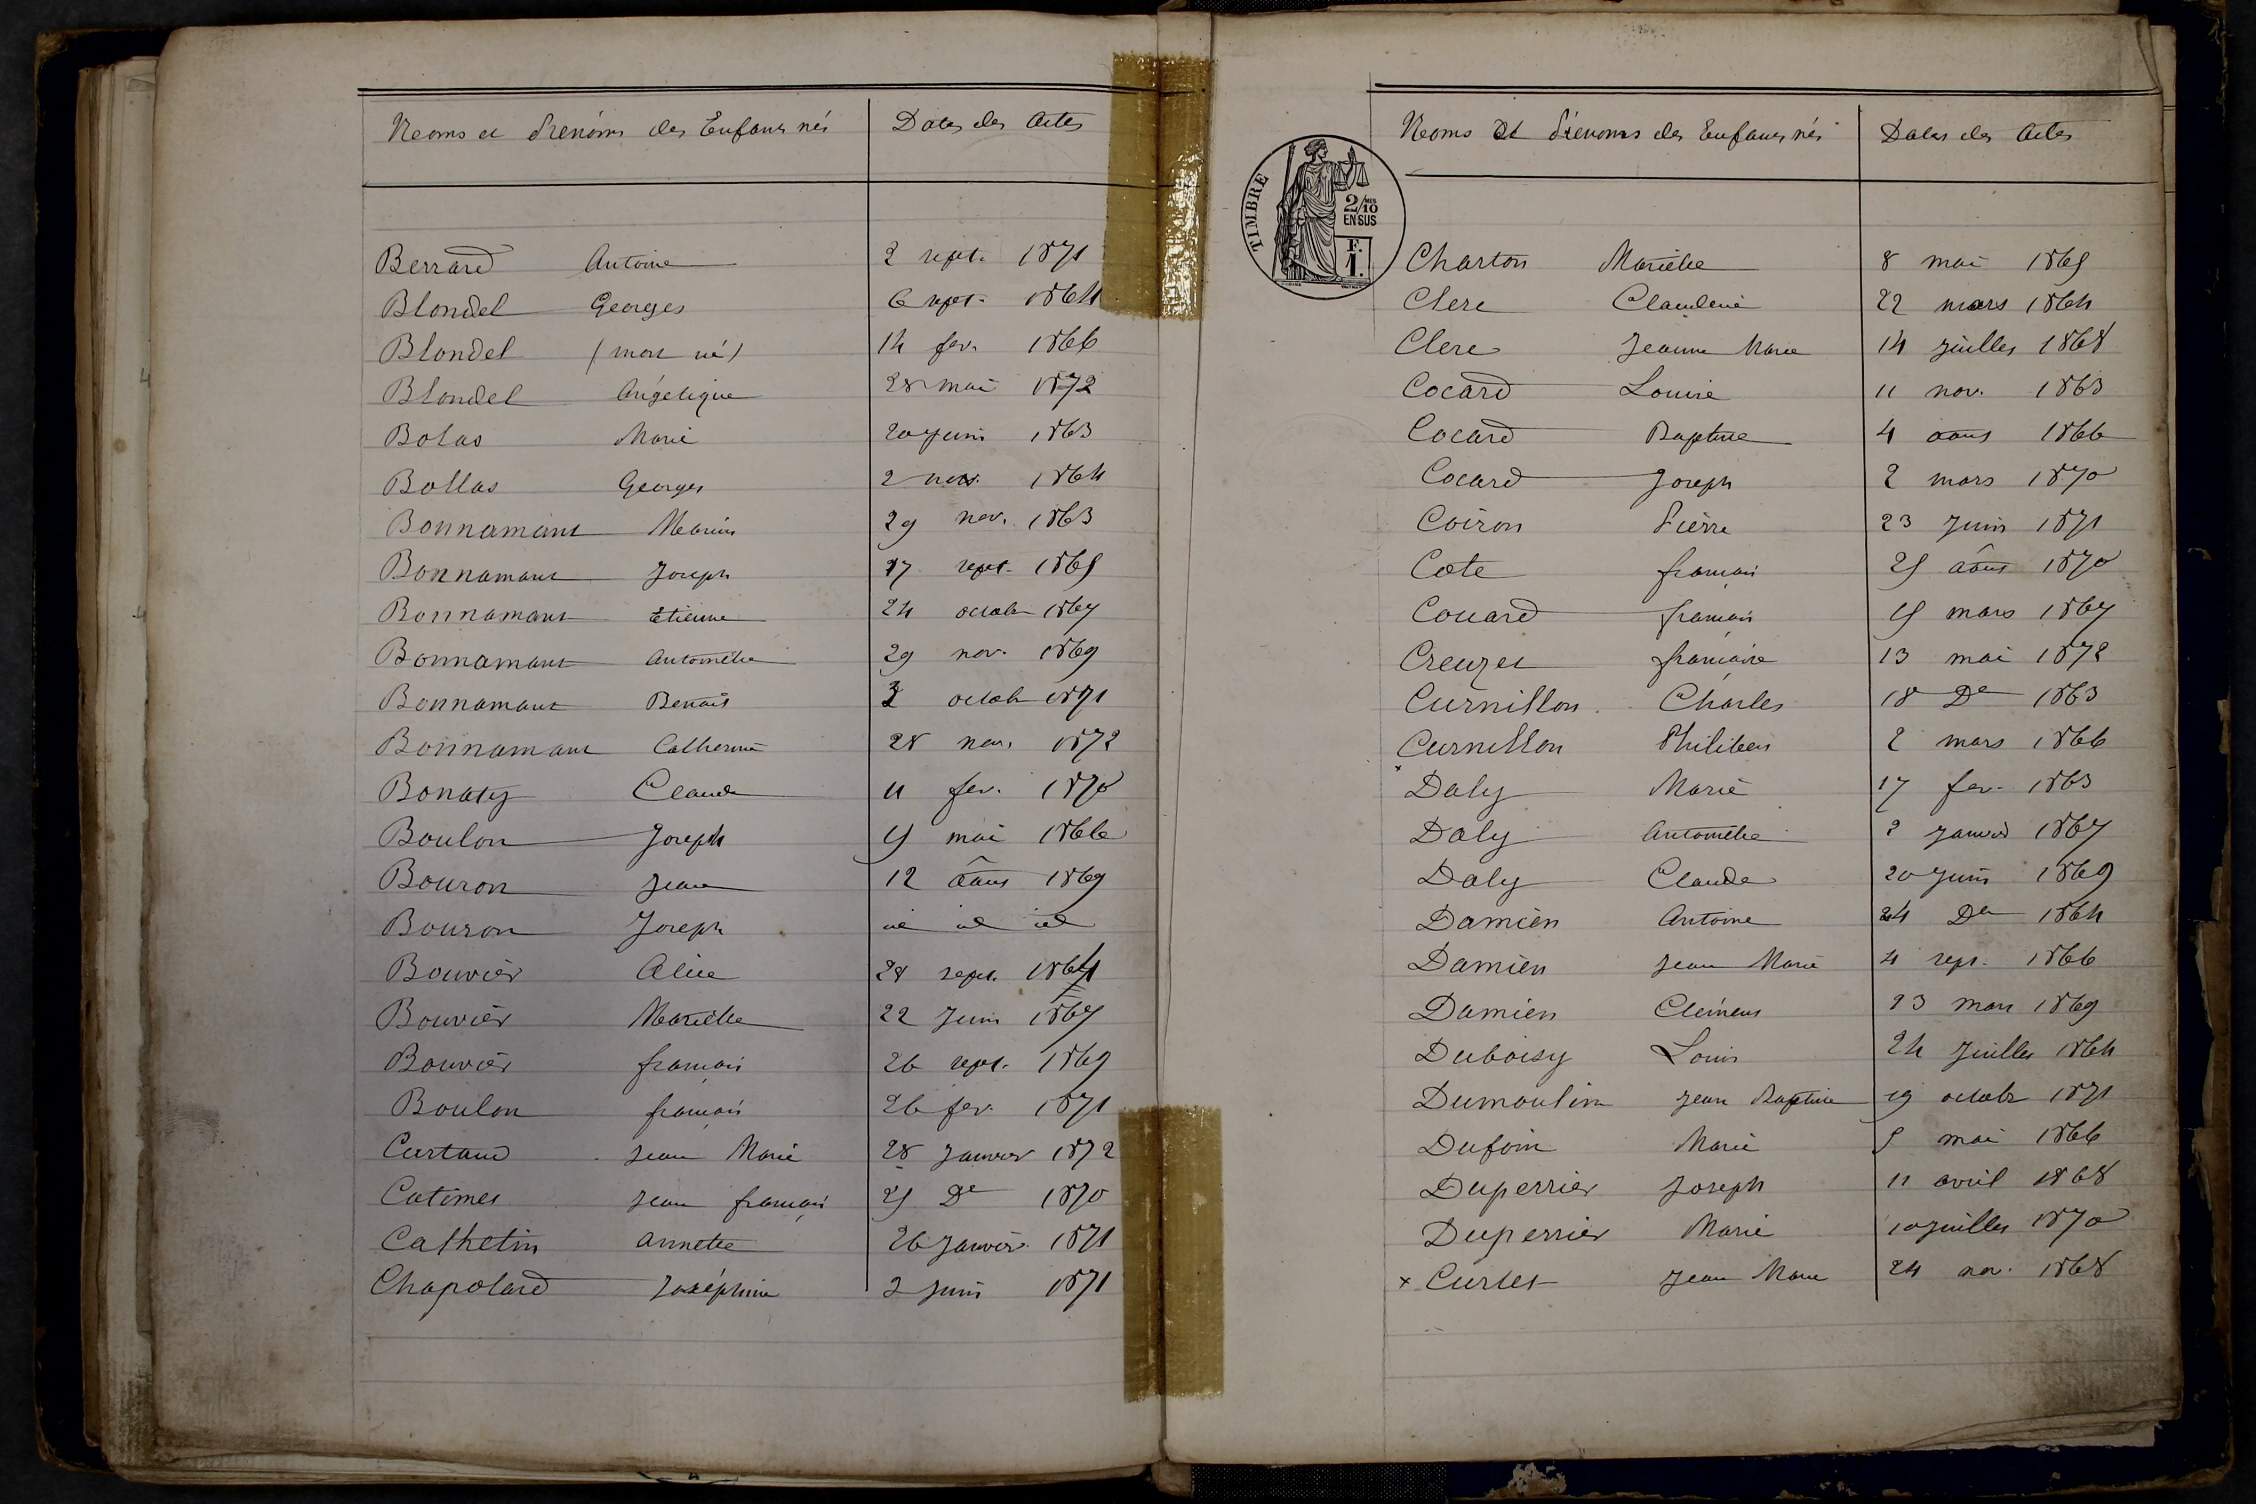 Noms et Prénoms des Enfants nés Dates des Actes
Berrard Antoine 2 sept. 1871
Blondel Georges 6 sept. 1864
Blondel (mort né) 14 fev. 1866
Blondel Angélique 28 mai 1872
Bolas Marie 20 Juin 1863
Bollas Georges 2 nov. 1864
Bonnamant Marius 29 nov. 1863
Bonnamant Joseph 17 sept. 1865
Bonnamant Etienne 24 octob 1867
Bonnamant Antoinette 29 nov. 1869
Bonnamant Benoit 3 octob 1871
Bonnamant Catherine 28 nov. 1872
Bonaty Claude 11 fev. 1870
Boulon Joseph 9 mai 1866
Bouron Jean 12 âout 1869
Bouron Joseph id id id
Bouvier Alice 28 sept. 1864
Bouvier Mariette 22 Juin 1867
Bouvier françois 26 sept. 1869
Boulon françois 26 fev. 1871
Curtaud Jean Marie 28 Janvier 1872
Catimes Jean françois 25 De 1870
Cathelin Annette 26 Janvier 1871
Chapolard Joséphine 2 Juin 1871
TIMBRE
2/10
EN SUS
F.
1.
Noms et Prénoms des Enfants nés Dates des Actes
Charton Mariette 8 mai 1865
Clerc Claudine 22 mars 1864
Clerc Jeanne Marie 14 Juillet 1868
Cocard Louise 11 nov. 1863
Cocard Baptiste 4 aout 1866
Cocard Joseph 2 mars 1870
Coiron Pierre 23 Juin 1871
Cote françois 25 âout 1870
Couard françois 15 mars 1867
Creuzet françoise 13 mai 1872
Curnillon Charles 18 De 1863
Curnillon Philibert 2 mars 1866
Daly Marie 17 fev. 1863
Daly Antoinette 2 Janvier 1867
Daly Claude 20 Juin 1869
Damien Antoine 24 De 1864
Damien Jean Marie 4 sept. 1866
Damien Clément 23 mars 1869
Duboisy Louis 24 Juillet 1864
Dumoulin Jean Baptiste 19 octobr 1871
Dufoin Marie 5 mai 1866
Duperrier Joseph 11 avril 1868
Duperrier Marie 10 Juillet 1870
x Curtet Jean Marie 24 nov. 1868